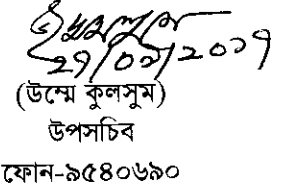 ২৭/০৩/২০১৭
(উম্মে কুলসুম)
উপসচিব
ফোন-৯৫৪০৬৯০